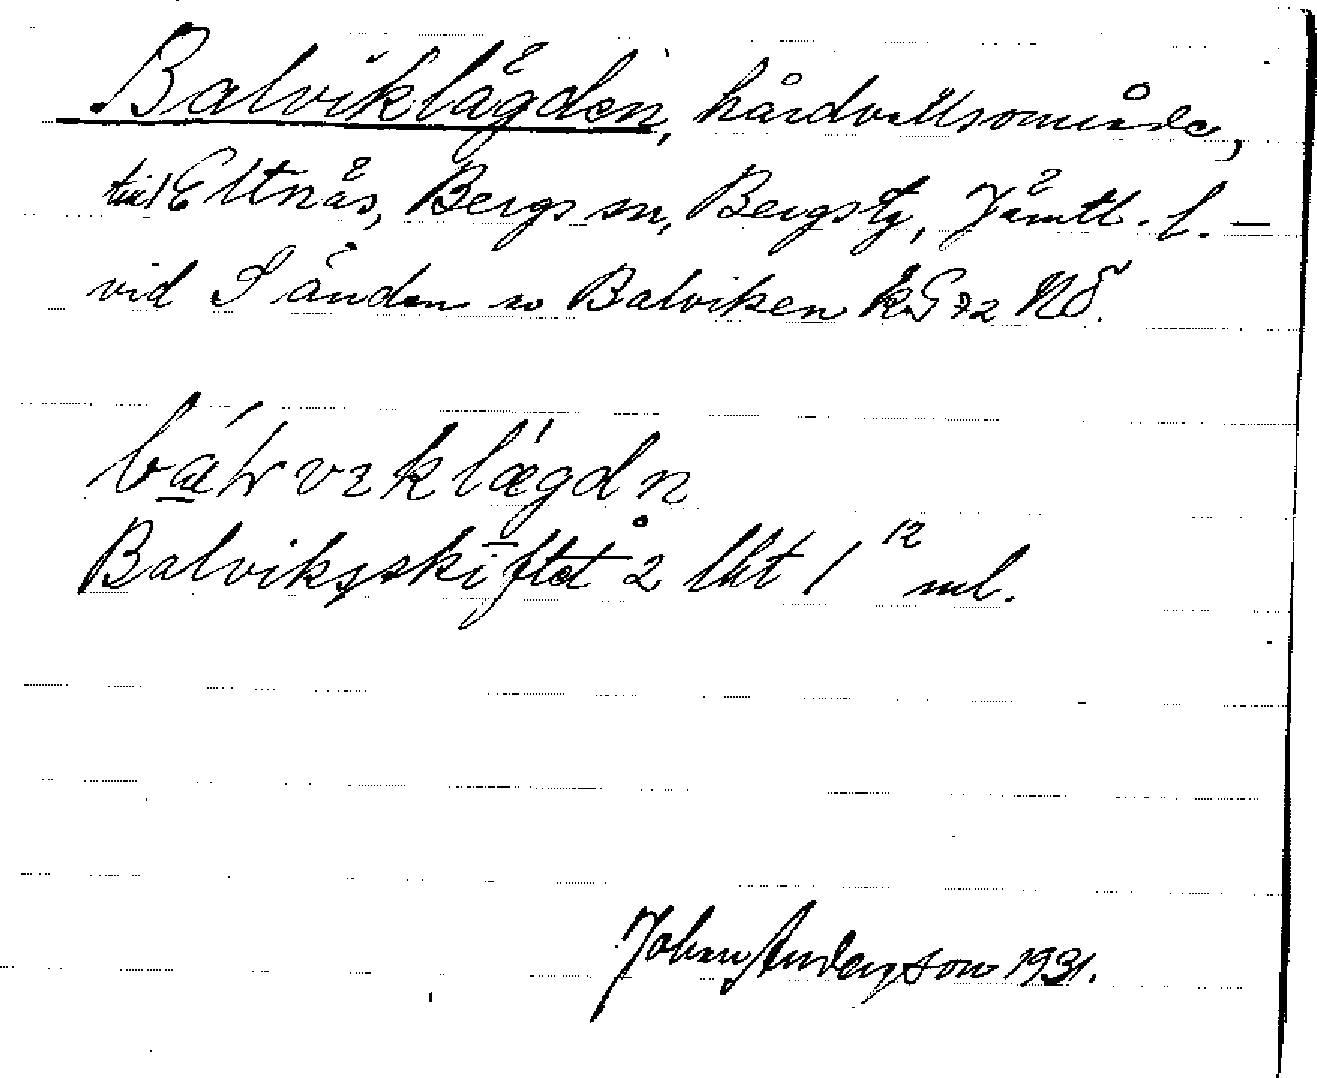 Balviklägden, hårdvallsområde,
till Eltnäs, Bergs sn, Bergs tg, Jämtl. l. –
vid S änden av Balviken NO.
Balviksskiftet 2 lkt 1 12 ml.
John Andersson 1931.